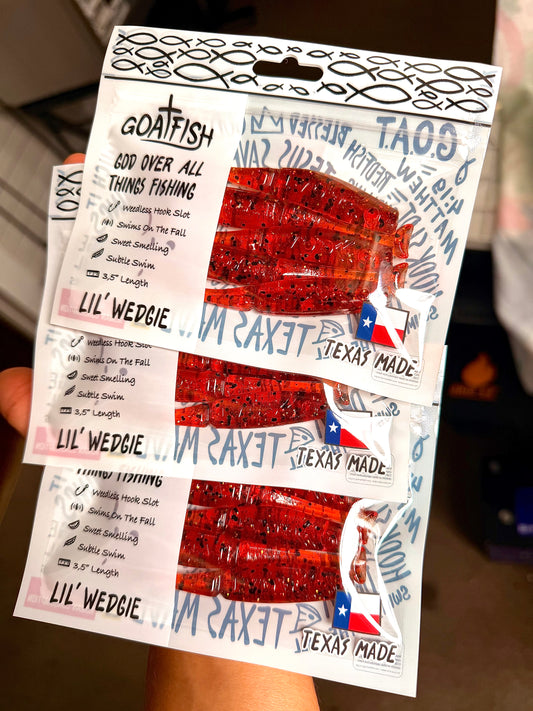 GOATFISH
GOD OVER ALL
THINGS FISHING
Weedless Hook Slot
Swims On The Fall
Sweet Smelling
Subtle Swim
3,5" Length
LIL' WEDGIE
G.O.A.T.
BLESSED
REDFISH
JESUS SAV
MATTHEW 4:19
TEXAS MA
TEXAS MADE
Weedless Hook Slot
Swims On The Fall
Sweet Smelling
Subtle Swim
3,5" Length
LIL' WEDGIE
TEXAS MA
TEXAS MADE
THINGS FISHING
Weedless Hook Slot
Swims On The Fall
Sweet Smelling
Subtle Swim
3,5" Length
LIL' WEDGIE
TEXAS MA
TEXAS MADE